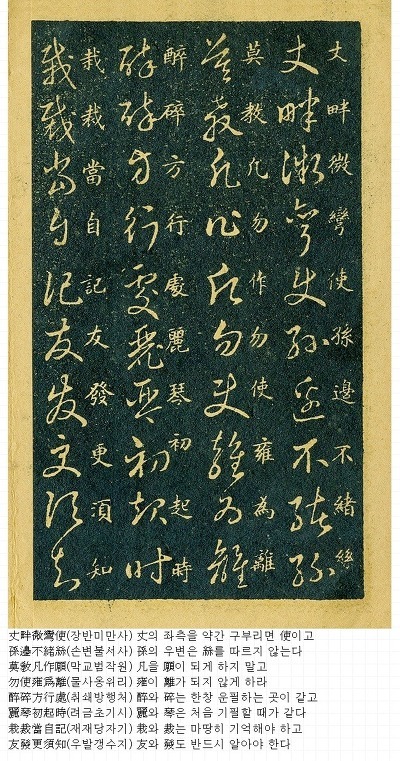 丈畔微彎使孫邊不緒絲
丈畔微彎使孫邊不緒絲
莫教凡勿作勿使雍為離
莫教凡作願勿使雍為離
醉碎方行處麗琴初起時
醉碎方行處麗琴初起時
栽裁當自記友發更須知
栽裁當自記友發更須知
丈畔微彎使(장반미만사) 丈의 좌측을 약간 구부리면 使이고
孫邊不緒絲(손변불서사) 孫의 우변은 絲를 따르지 않는다
莫敎凡作願(막교범작원) 凡을 願이 되게 하지 말고
勿使雍爲離(물사옹위리) 雍이 離가 되지 않게 하라
醉碎方行處(취쇄방행처) 醉와 碎는 한창 운필하는 곳이 같고
麗琴初起時(려금초기시) 麗와 琴은 처음 기필할 때가 같다
栽裁當自記(재재당자기) 栽와 裁는 마땅히 기억해야 하고
友發更須知(우발갱수지) 友와 發도 반드시 알아야 한다